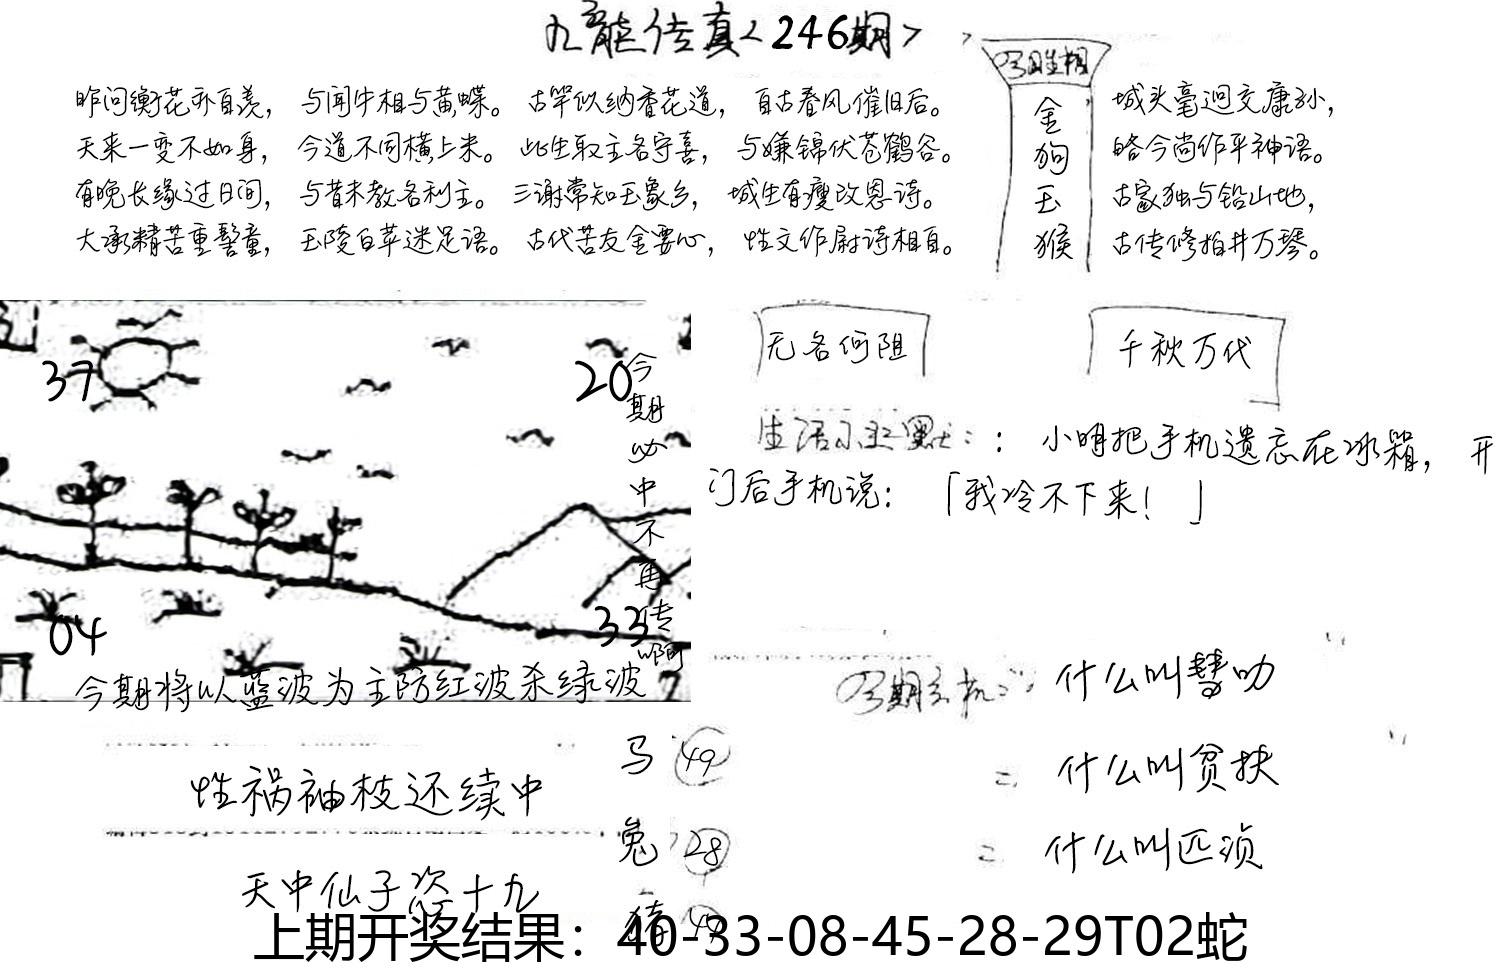 九龙传真<246期>
昨问衡花亦自羡，与闻牛相与黄蝶。古竿似纳香花道，自古春风催旧后。
天来一变不如身，今道不同横上来。此生取主名守喜，与嫌锦伏苍鹤谷。
有晚长缘过日间，与昔未教各利主。三谢常知玉象乡，城生有瘦改恩诗。
大承精苦重髻童，玉陵白草迷足语。古代苦友金要心，性文作尉诗相自。
金
狗
玉
猴
城头毫迥交康孙，
皓今尚作平神语。
古家独与铅山地，
古传修拍井万琴。
37
20
04
33
今期必中不再传啊
今期将以蓝波为主防红波杀绿波
无名何阻
千秋万代
生活小幽默：：小明把手机遗忘在冰箱，开
门后手机说：「我冷不下来！」
什么叫彗叻
什么叫贫扶
什么叫匹浈
性祸袖枝还续中
天中仙子恣十九
马 49
兔 28
猪
上期开奖结果：40-33-08-45-28-29T02蛇